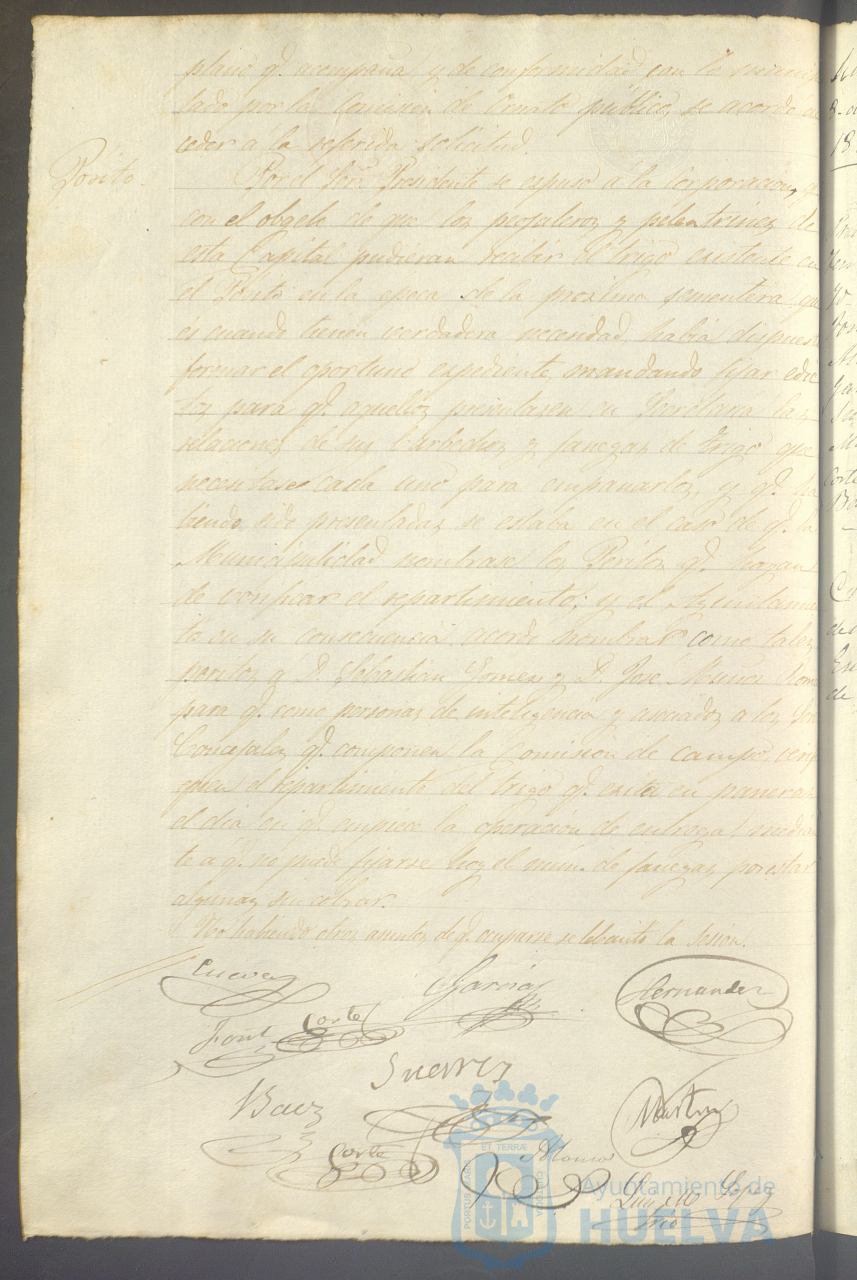 plano q.e acompaña y de conformidad con lo
tado por la Comision de Ornato público, se acordó ac
ceder á la referida solicitud.
Pósito. Por el Sor. Presidente se espuso á la Corporacion, q.e
con el objeto de que los pegujaleros y pelentrines de
esta Capital pudieran recibir el trigo existente en
el Pósito en la epoca de la proxima sementera que
és cuando tienen verdadera necesidad, había dispuest
formar el oportuno expediente, mandando fijar edic
tos para q.e aquellos presentasen en Secretaria las
relaciones de sus barbechos y fanegas de trigo que
necesitase cada uno para empanarlos, y q.e ha
biendo sido presentadas se estaba en el caso de q.e la
Municipalidad nombrase los Peritos q.e hayan
de verificar el repartimiento; y el Ayuntamien
to en su consecuencia acordó nombrar como tales
peritos a D. Sebastian Gomez y D. José Muñoz
para q.e como personas de inteligencia y asociados a los Sres
Concejales q.e componen la Comision de campo, veri
quen el repartimiento del trigo q.e exista en paneras
el dia en q.e empiece la operacion de entrega, median
te á q.e no puede fijarse hoy el núm. de fanegas por estar
algunas sin cobrar.
No habiendo otros asuntos de q.e ocuparse se lebantó la sesion.
Cuevas García Hernandez
Font Corte
Suarez
Baez Martin
Corte Alonso
Lopez
Srio
ET TERRÆ
PORTUS MARIS
CUSTODIA
Ayuntamiento de
HUELVA